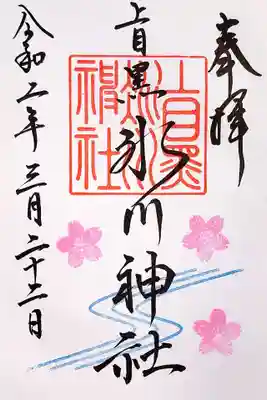 奉拝
上目黒氷川神社
令和二年三月二十二日
上目黒氷川神社